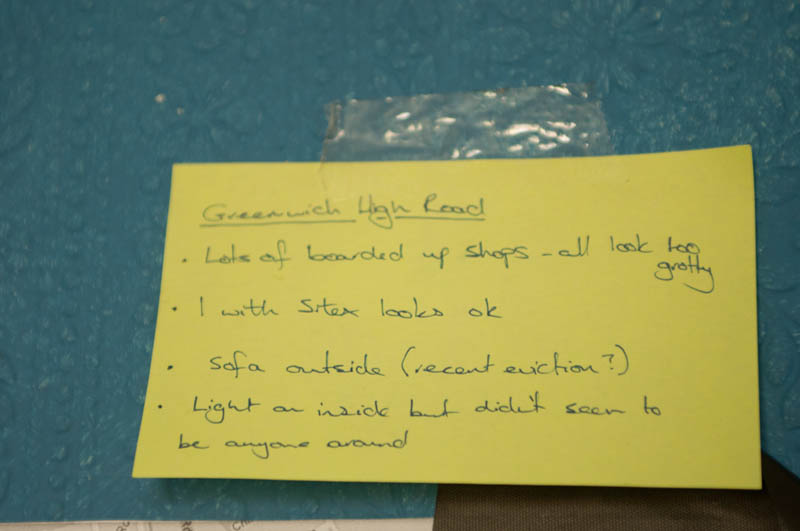 Greenwich High Road
· Lots of boarded up shops - all look too
grotty
· 1 with Sitex looks ok
· Sofa outside (recent eviction?)
· Light on inside but didn't seem to
be anyone around